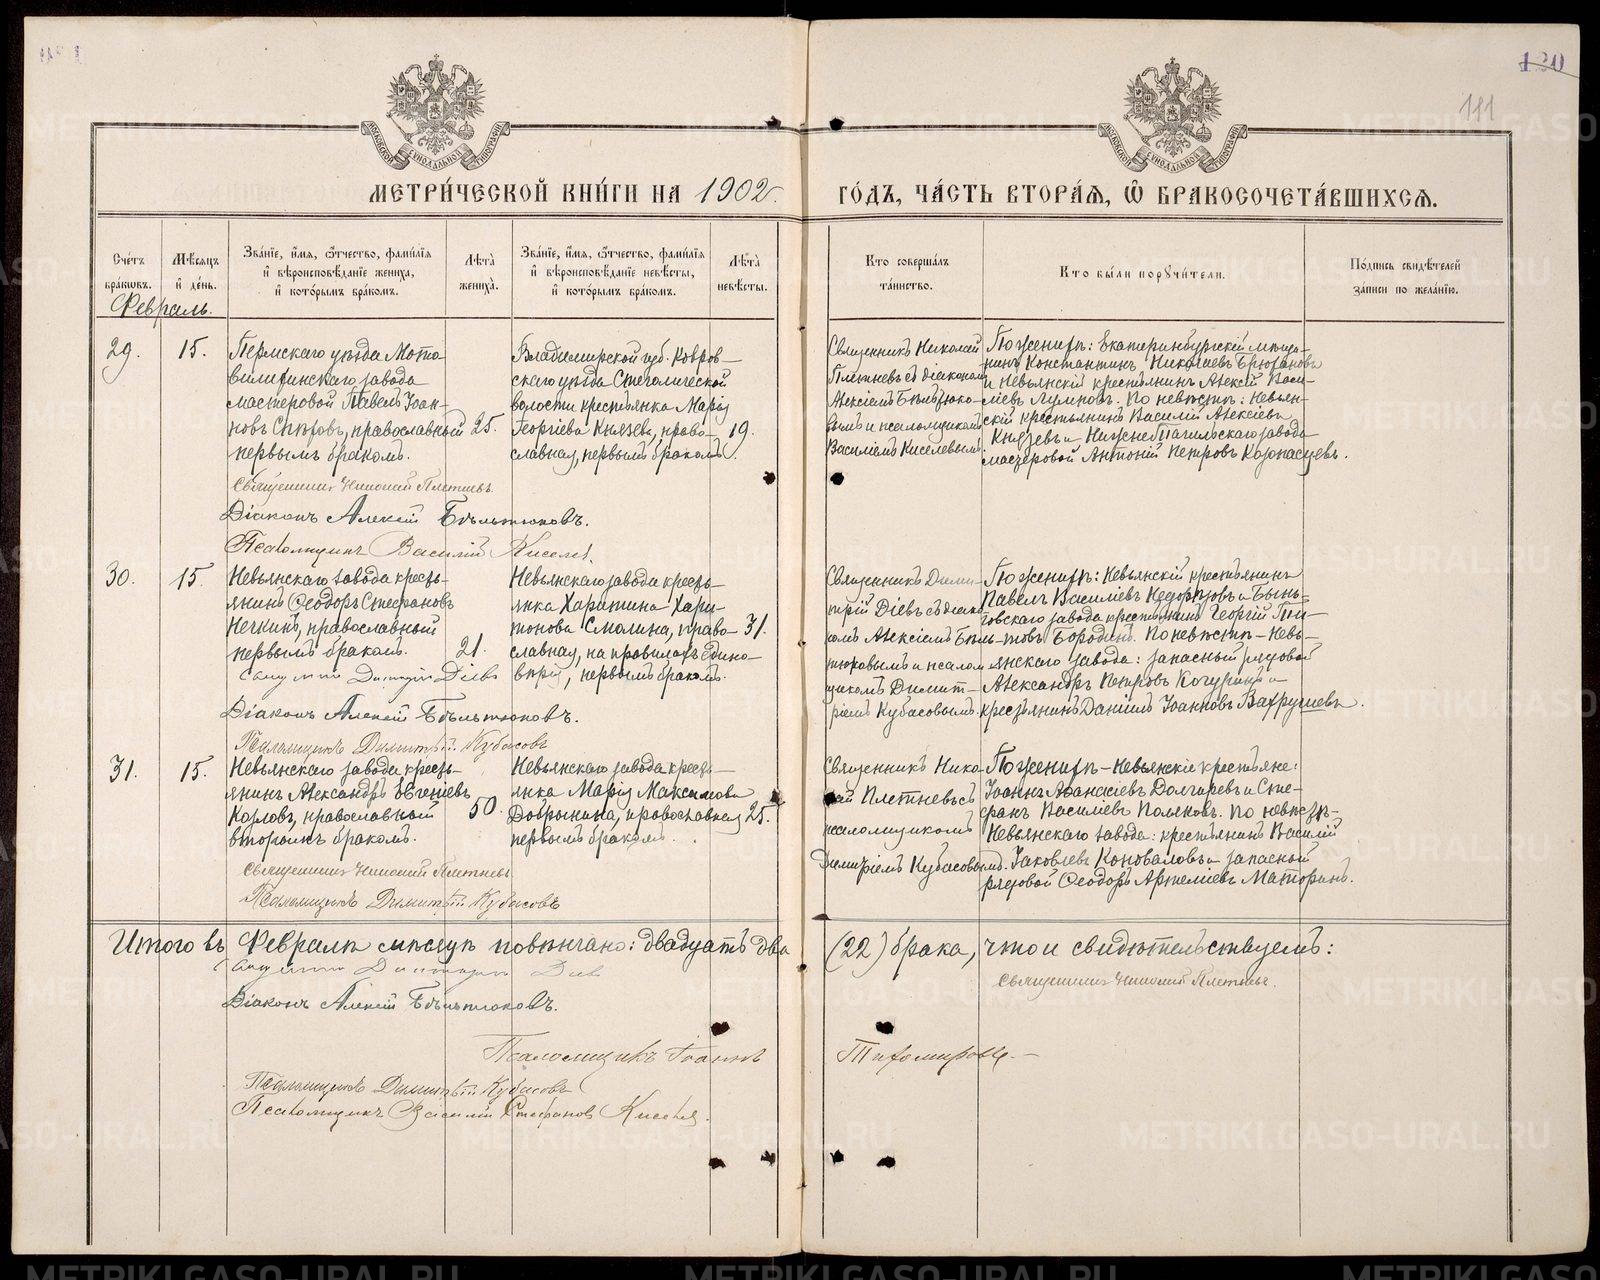 120
111
МОСКОВСКОЙ СѴНОДАЛЬНОЙ ТИПОГРАФІИ
МОСКОВСКОЙ СѴНОДАЛЬНОЙ ТИПОГРАФІИ
МЕТРИ́ЧЕСКОЙ КНИ́ГИ НА 1902 г.
ГО́ДЪ, ЧА́СТЬ ВТОРА́Ѧ, Ѽ БРАКОСОЧЕТА́ВШИХСѦ.
Сче́тъ бра́кѡвъ.
Мѣ́сяцъ и҆ де́нь.
Зва́нїе, и҆́мѧ, ѻ҆́тчество, фами́лїѧ
и҆ вѣроисповѣ́данїе жениха̀,
и҆ кото́рымъ бра́комъ.
Лѣ́та̀ жениха̀.
Зва́нїе, и҆́мѧ, ѻ҆́тчество, фами́лїѧ
и҆ вѣроисповѣ́данїе невѣ́сты,
и҆ кото́рымъ бра́комъ.
Лѣ́та̀ невѣ́сты.
Кто соверша́лъ
та́инство.
Кто бы́ли порꙋчи́тели.
По́дпись свидѣ́телей
за́писи по жела́нїю.
Февраль.
29.
15.
Пермскаго уѣзда Мото-
вилихинскаго завода
мастеровой Павелъ Іоан-
новъ Спѣховъ, православный
первымъ бракомъ.
25.
Владимірской губ. Ковров-
скаго уѣзда
волости крестьянка Марія
Георгіева Князева, право-
славная, первымъ бракомъ
19.
Священникъ Николай
Плетневъ съ діакономъ
Алексіемъ Бѣльтюко-
вымъ и псаломщикомъ
Василіемъ Киселевымъ
По женихѣ: Екатеринбургскій мѣща-
нинъ Константинъ Николаевъ Брюхановъ
и Невьянскій крестьянинъ Алексій Васи-
ліевъ По невѣстѣ: Невьян-
скій крестьянинъ Василій Алексіевъ
Князевъ и Нижнетагильскаго завода
мастеровой Антоній Петровъ
Священникъ Николай Плетневъ.
Діаконъ Алексій Бѣльтюковъ.
Псаломщикъ Василій Киселевъ
30.
15.
Невьянскаго завода кресть-
янинъ Ѳеодоръ Стефановъ
Нечкинъ, православный
первымъ бракомъ.
21.
Невьянскаго завода кресть-
янка Харитина Хари-
тонова Смолина, право-
славная, на правилахъ едино-
вѣрія, первымъ бракомъ.
31.
Священникъ Дими-
трій Діевъ съ діако-
номъ Алексіемъ Бѣль-
тюковымъ и псалом-
щикомъ Димит-
ріемъ Кубасовымъ.
По женихѣ: Невьянскій крестьянинъ
Павелъ Василіевъ и Бынь-
говскаго завода крестьянинъ Георгій
Бородинъ. По невѣстѣ – Невь-
янскаго завода: запасный рядовой
Александръ Петровъ Кочуринъ и
крестьянинъ Даніилъ Іоанновъ Вахрушевъ.
Священникъ Димитрій Діевъ
Діаконъ Алексій Бѣльтюковъ.
Псаломщикъ Димитрій Кубасовъ
31.
15.
Невьянскаго завода кресть-
янинъ Александръ Евгеніевъ
Козловъ, православный
вторымъ бракомъ.
50.
Невьянскаго завода кресть-
янка Марія Максимова
Добрынина, православная
первымъ бракомъ.
25.
Священникъ Нико-
лай Плетневъ съ
псаломщикомъ
Димитріемъ Кубасовымъ.
По женихѣ – Невьянскіе крестьяне:
Іоаннъ Аѳанасіевъ Долгаревъ и Сте-
фанъ Василіевъ Поляковъ. По невѣстѣ
Невьянскаго завода: крестьянинъ Василій
Іаковлевъ Коноваловъ и запасной
рядовой Ѳеодоръ Артеміевъ Маторинъ.
Священникъ Николай Плетневъ
Псаломщикъ Димитрій Кубасовъ
Итого въ Февралѣ мѣсяцѣ повѣнчано: двадцать два
(22) брака, что и свидѣтельствуемъ:
Священникъ Димитрій Діевъ
Священникъ Николай Плетневъ.
Діаконъ Алексій Бѣльтюковъ.
Псаломщикъ Іоаннъ
Тихомировъ. –
Псаломщикъ Димитрій Кубасовъ
Псаломщикъ Василій Стефановъ Киселевъ.
METRIKI.GASO-URAL.RU